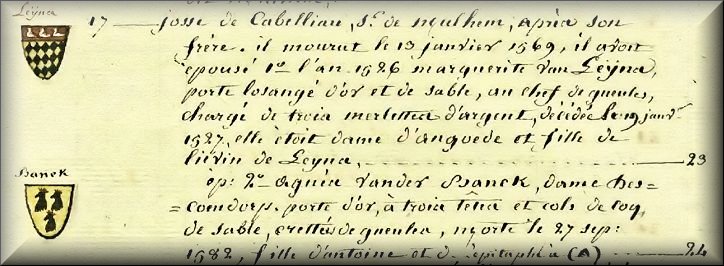 Leÿna
17 — josse de Cabelliau, Sr. de mulhem, après son
frère. il mourut le 13 janvier 1569, il avoit
épousé 1o l'an 1526 marguerite van Leÿna,
porte losangé d'or et de sable, au chef de gueules,
chargé de trois merlettes d'argent, décédée le 9 janvr
1527, elle étoit dame d'anguede et fille de
lievin de Leyna, — 23
Banck
ep: 2o agnès vander Banck, dame hes=
=comdorp. porte d'or, à trois têtes et cols de coq
de sable, crettés de gueules, morte le 27 sep:
1582, fille d'antoine et d. épitaphe à (A) — 24